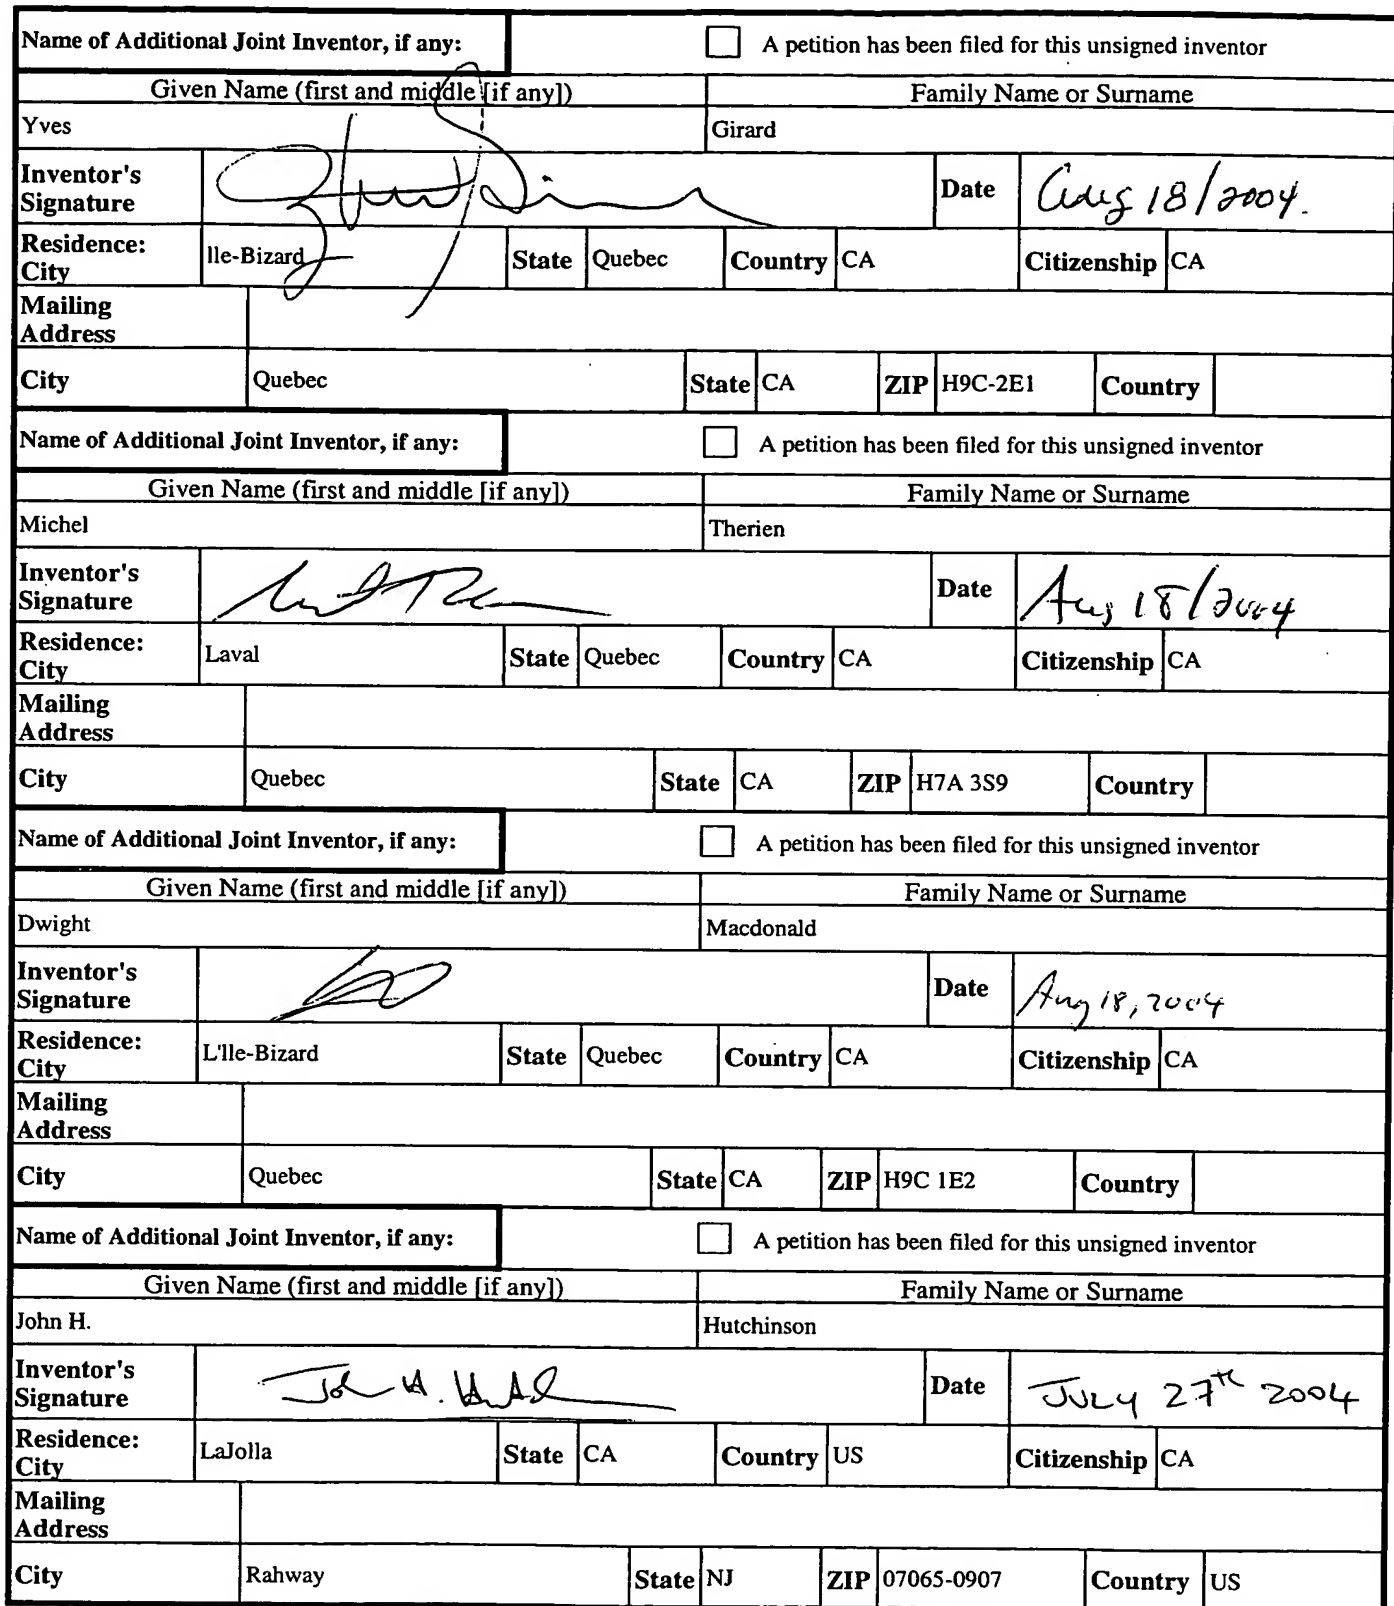 Name of Additional Joint Inventor, if any: A petition has been filed for this unsigned inventor
Given Name (first and middle [if any]) Family Name or Surname
Yves Girard
Inventor's Signature Date Aug 18/2004.
Residence: City lle-Bizard State Quebec Country CA Citizenship CA
Mailing Address
City Quebec State CA ZIP H9C-2E1 Country
Name of Additional Joint Inventor, if any: A petition has been filed for this unsigned inventor
Given Name (first and middle [if any]) Family Name or Surname
Michel Therien
Inventor's Signature Date Aug 18/2004
Residence: City Laval State Quebec Country CA Citizenship CA
Mailing Address
City Quebec State CA ZIP H7A 3S9 Country
Name of Additional Joint Inventor, if any: A petition has been filed for this unsigned inventor
Given Name (first and middle [if any]) Family Name or Surname
Dwight Macdonald
Inventor's Signature Date Aug 18, 2004
Residence: City L'lle-Bizard State Quebec Country CA Citizenship CA
Mailing Address
City Quebec State CA ZIP H9C 1E2 Country
Name of Additional Joint Inventor, if any: A petition has been filed for this unsigned inventor
Given Name (first and middle [if any]) Family Name or Surname
John H. Hutchinson
Inventor's Signature Date JULY 27th 2004
Residence: City LaJolla State CA Country US Citizenship CA
Mailing Address
City Rahway State NJ ZIP 07065-0907 Country US